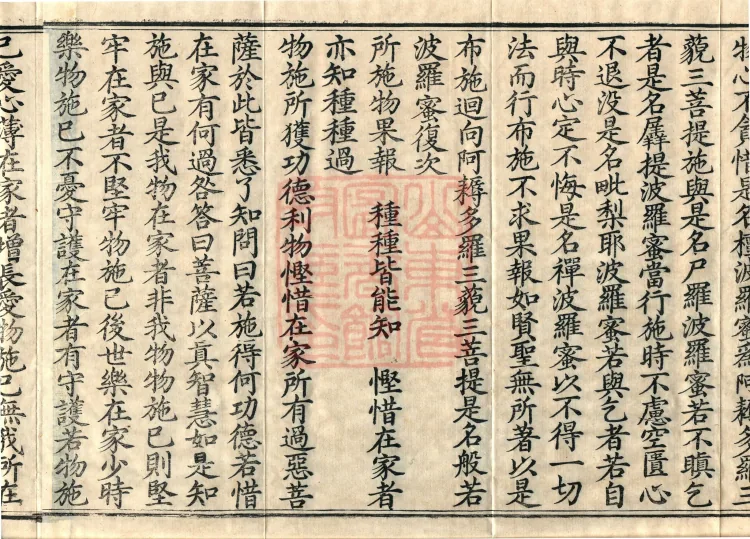 物心不貪惜是名檀波羅蜜為阿耨多羅三
藐三菩提施與是名尸羅波羅蜜若不瞋乞
者是名羼提波羅蜜當行施時不慮空匱心
不退没是名毗梨耶波羅蜜若與乞者若自
與時心定不悔是名禪波羅蜜以不得一切
法而行布施不求果報如賢聖無所著以是
布施迴向阿耨多羅三藐三菩提是名般若
波羅蜜復次
所施物果報 種種皆能知 慳惜在家者
亦知種種過
物施所獲功德利物慳惜在家所有過惡菩
薩於此皆悉了知問曰若施得何功德若惜
在家有何過咎答曰菩薩以真智慧如是知
施與已是我物在家者非我物物施已則堅
牢在家者不堅牢物施已後世樂在家少時
樂物施已不憂守護在家者有守護若物施
已愛心薄在家者增長愛物施已無我所在